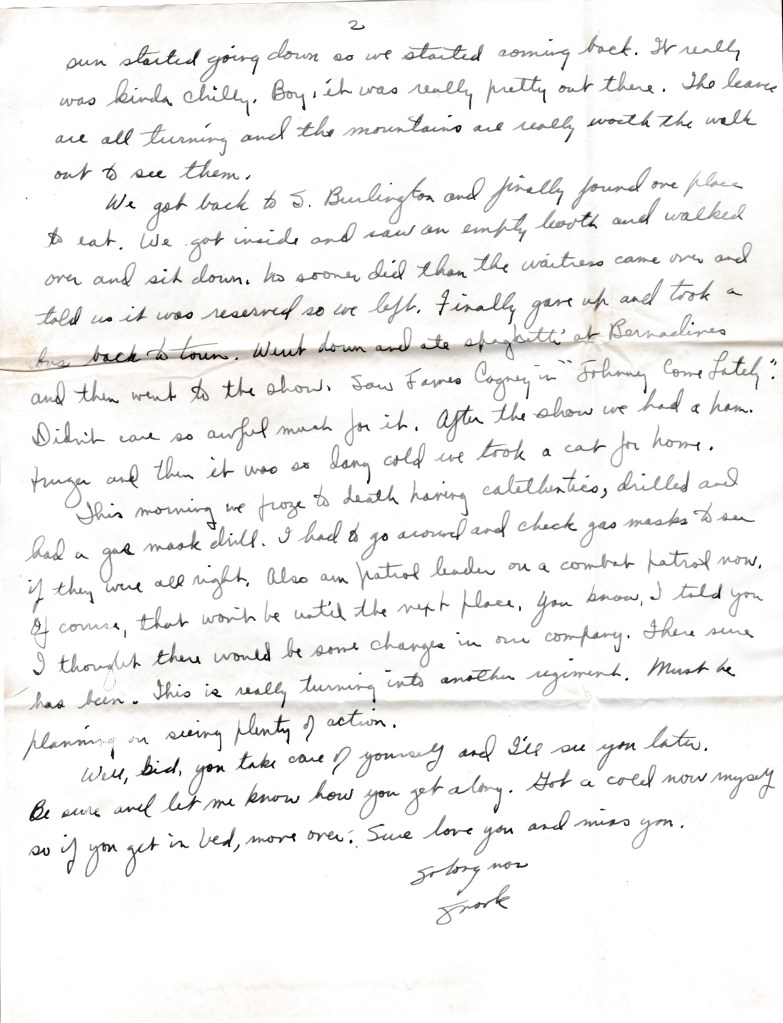 2
sun started going down so we started coming back. It really
was kinda chilly. Boy, it was really pretty out there. The leaves
are all turning and the mountains are really worth the walk
out to see them.
We got back to S. Burlington and finally found one place
to eat. We got inside and saw an empty booth and walked
over and sit down. No sooner did than the waitress came over and
told us it was reserved so we left. Finally gave up and took a
bus back to town. Went down and ate spaghitti at Bernadines
and then went to the show. Saw James Cagney in "Johnny Come Lately".
Didn't care so awful much for it. After the show we had a ham.
burger and then it was so dang cold we took a cab for home.
This morning we froze to death having calethentics, drilled and
had a gas mask drill. I had to go around and check gas masks to see
if they were all right. Also am patrol leader on a combat patrol now.
Of course, that won't be until the next place. You know, I told you
I thought there would be some changes in our company. There sure
has been. This is really turning into another regiment. Must be
planning on seeing plenty of action.
Well, kid, you take care of yourself and I'll see you later.
Be sure and let me know how you get along. Got a cold now myself
so if you get in bed, move over. Sure love you and miss you.
So long now